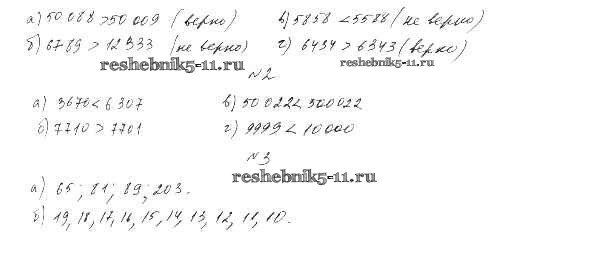 а) 50 088 > 50 009 (верно) в) 5858 < 5588 (не верно)
б) 6789 > 12 333 (не верно) г) 6434 > 6343 (верно)
reshebnik5-11.ru reshebnik5-11.ru
№2
а) 3670 < 6 307 в) 50 022 < 500 022
б) 7710 > 7701 г) 9999 < 10 000
№3
reshebnik5-11.ru
а) 65; 81; 89; 203.
б) 19, 18, 17, 16, 15, 14, 13, 12, 11, 10.